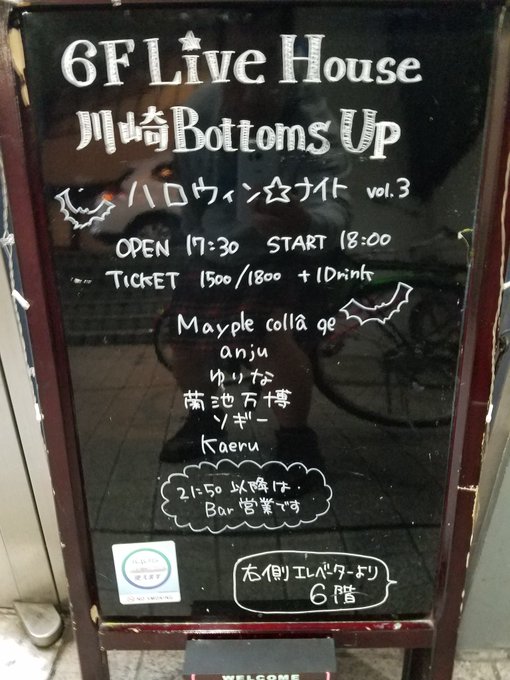 6F Live House
川崎 Bottoms Up
ハロウィン☆ナイト vol.3
OPEN 17:30 START 18:00
TICKET 1500/1800 +1Drink
Mayple collâ ge
anju
ゆりな
菊池万博
ソギー
Kaeru
21:50 以降は
Bar 営業です
右側エレベーターより
6階
WELCOME